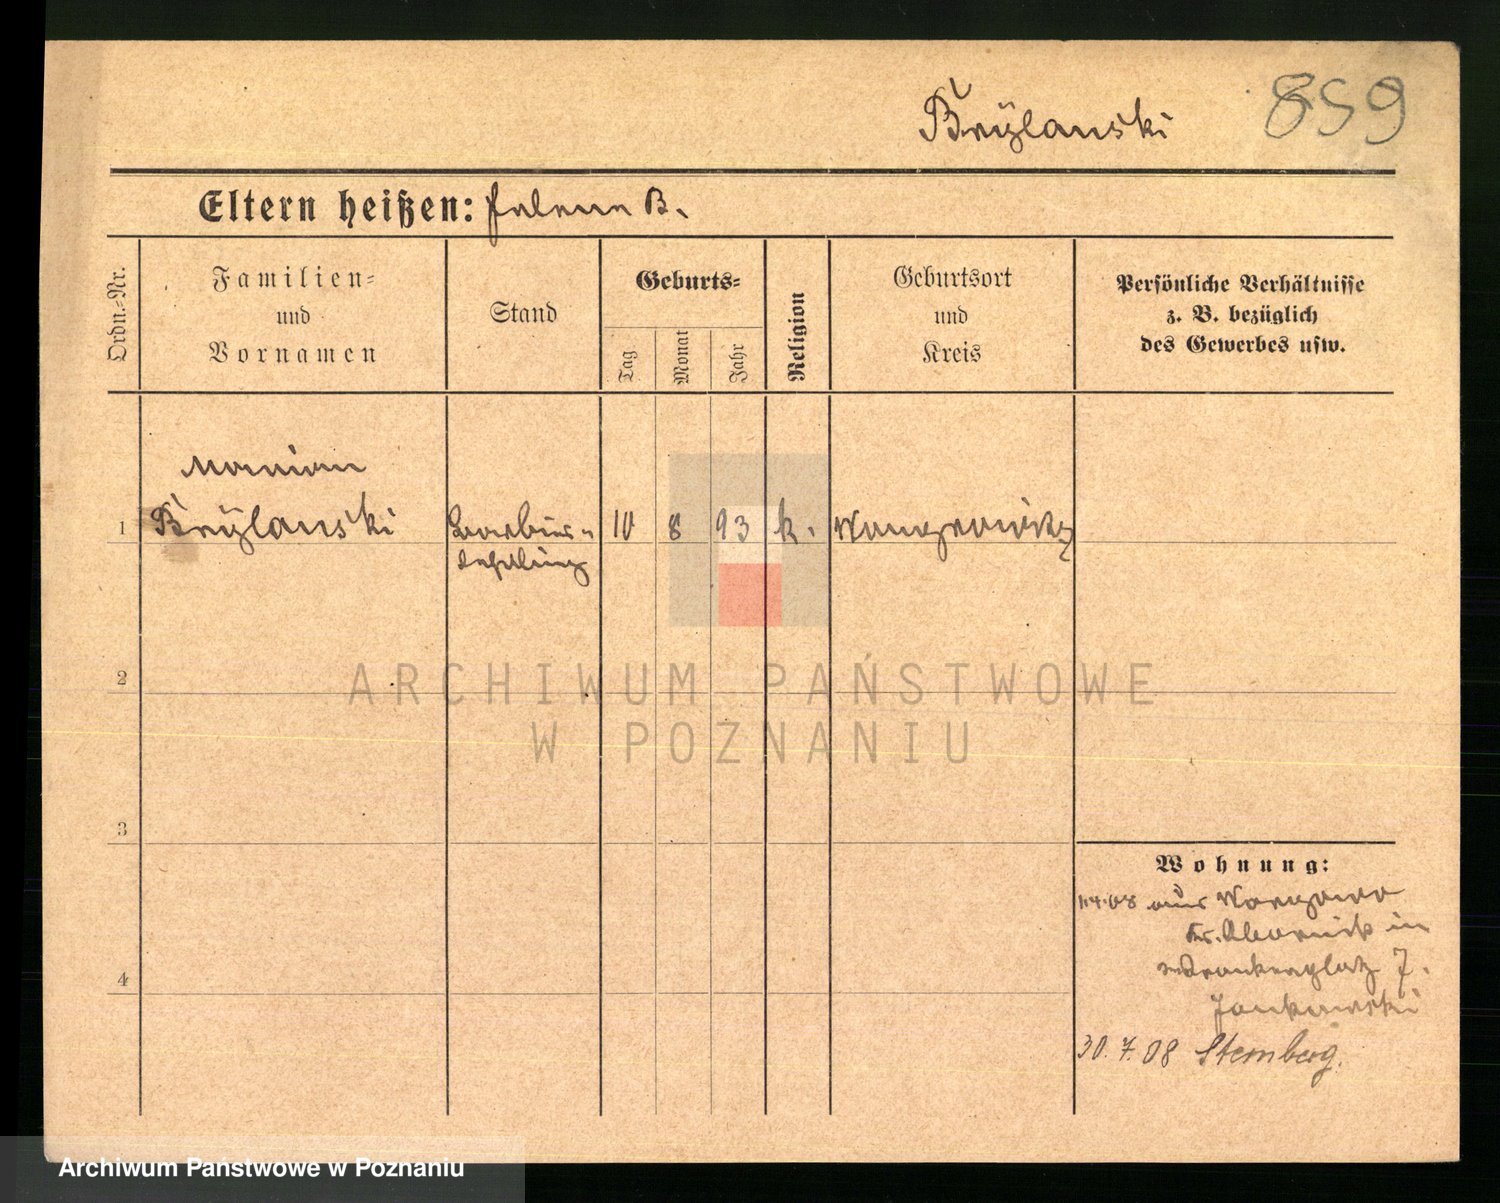 Brÿlanski 859
Eltern heißen: Helene B.
Ordn.-Nr.
Familien-
und
Vornamen
Stand
Geburts-
Tag
Monat
Jahr
Religion
Geburtsort
und
Kreis
Persönliche Verhältnisse
z. B. bezüglich
des Gewerbes usw.
Marian
1 Brÿlanski Barbier- 10 8 93 k. Wongrowitz
Lehrling
2
ARCHIWUM PAŃSTWOWE
W POZNANIU
3
Wohnung:
aus
Kr. Obornik in
4
7.
Jankowski
30.7.08 Sternberg.
Archiwum Państwowe w Poznaniu